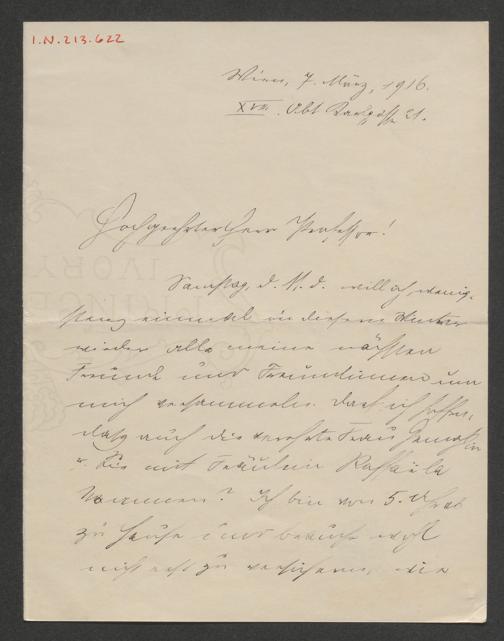 I.N. 213.622
Wien, 7. März, 1916.
XVIII. 21.
Hochgeehrter Herr Professor!
Samstag, d. 11. d. will ich wenig-
stens einmal in diesem Winter
wieder alle meine nächsten
Freunde und Freundinnen um
mich versammeln. Darf ich hoffen,
daß auch die verehrte Frau Gemahlin
u. Sie mit Fräulein Raffaela
kommen? Ich bin von 5. Uhr ab
zu Hause und brauche wohl
nicht erst zu versichern, wie
IVORY
PRINCE